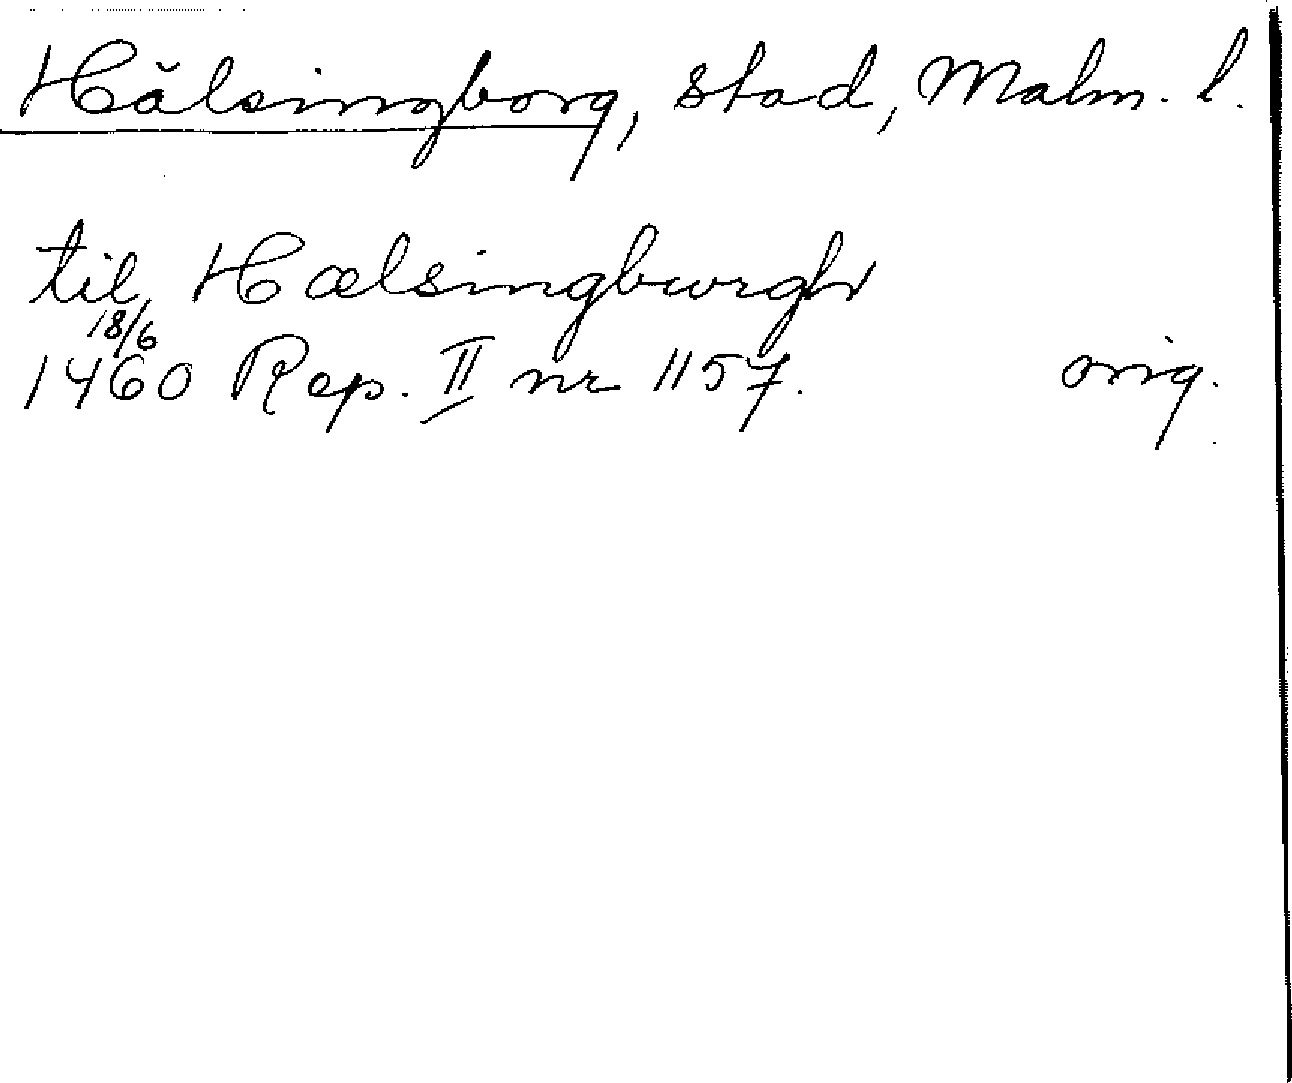 Hälsingborg, stad, Malm. l.
til Hælsingburgh
18/6
1460 Rep. II nr 1157. orig.